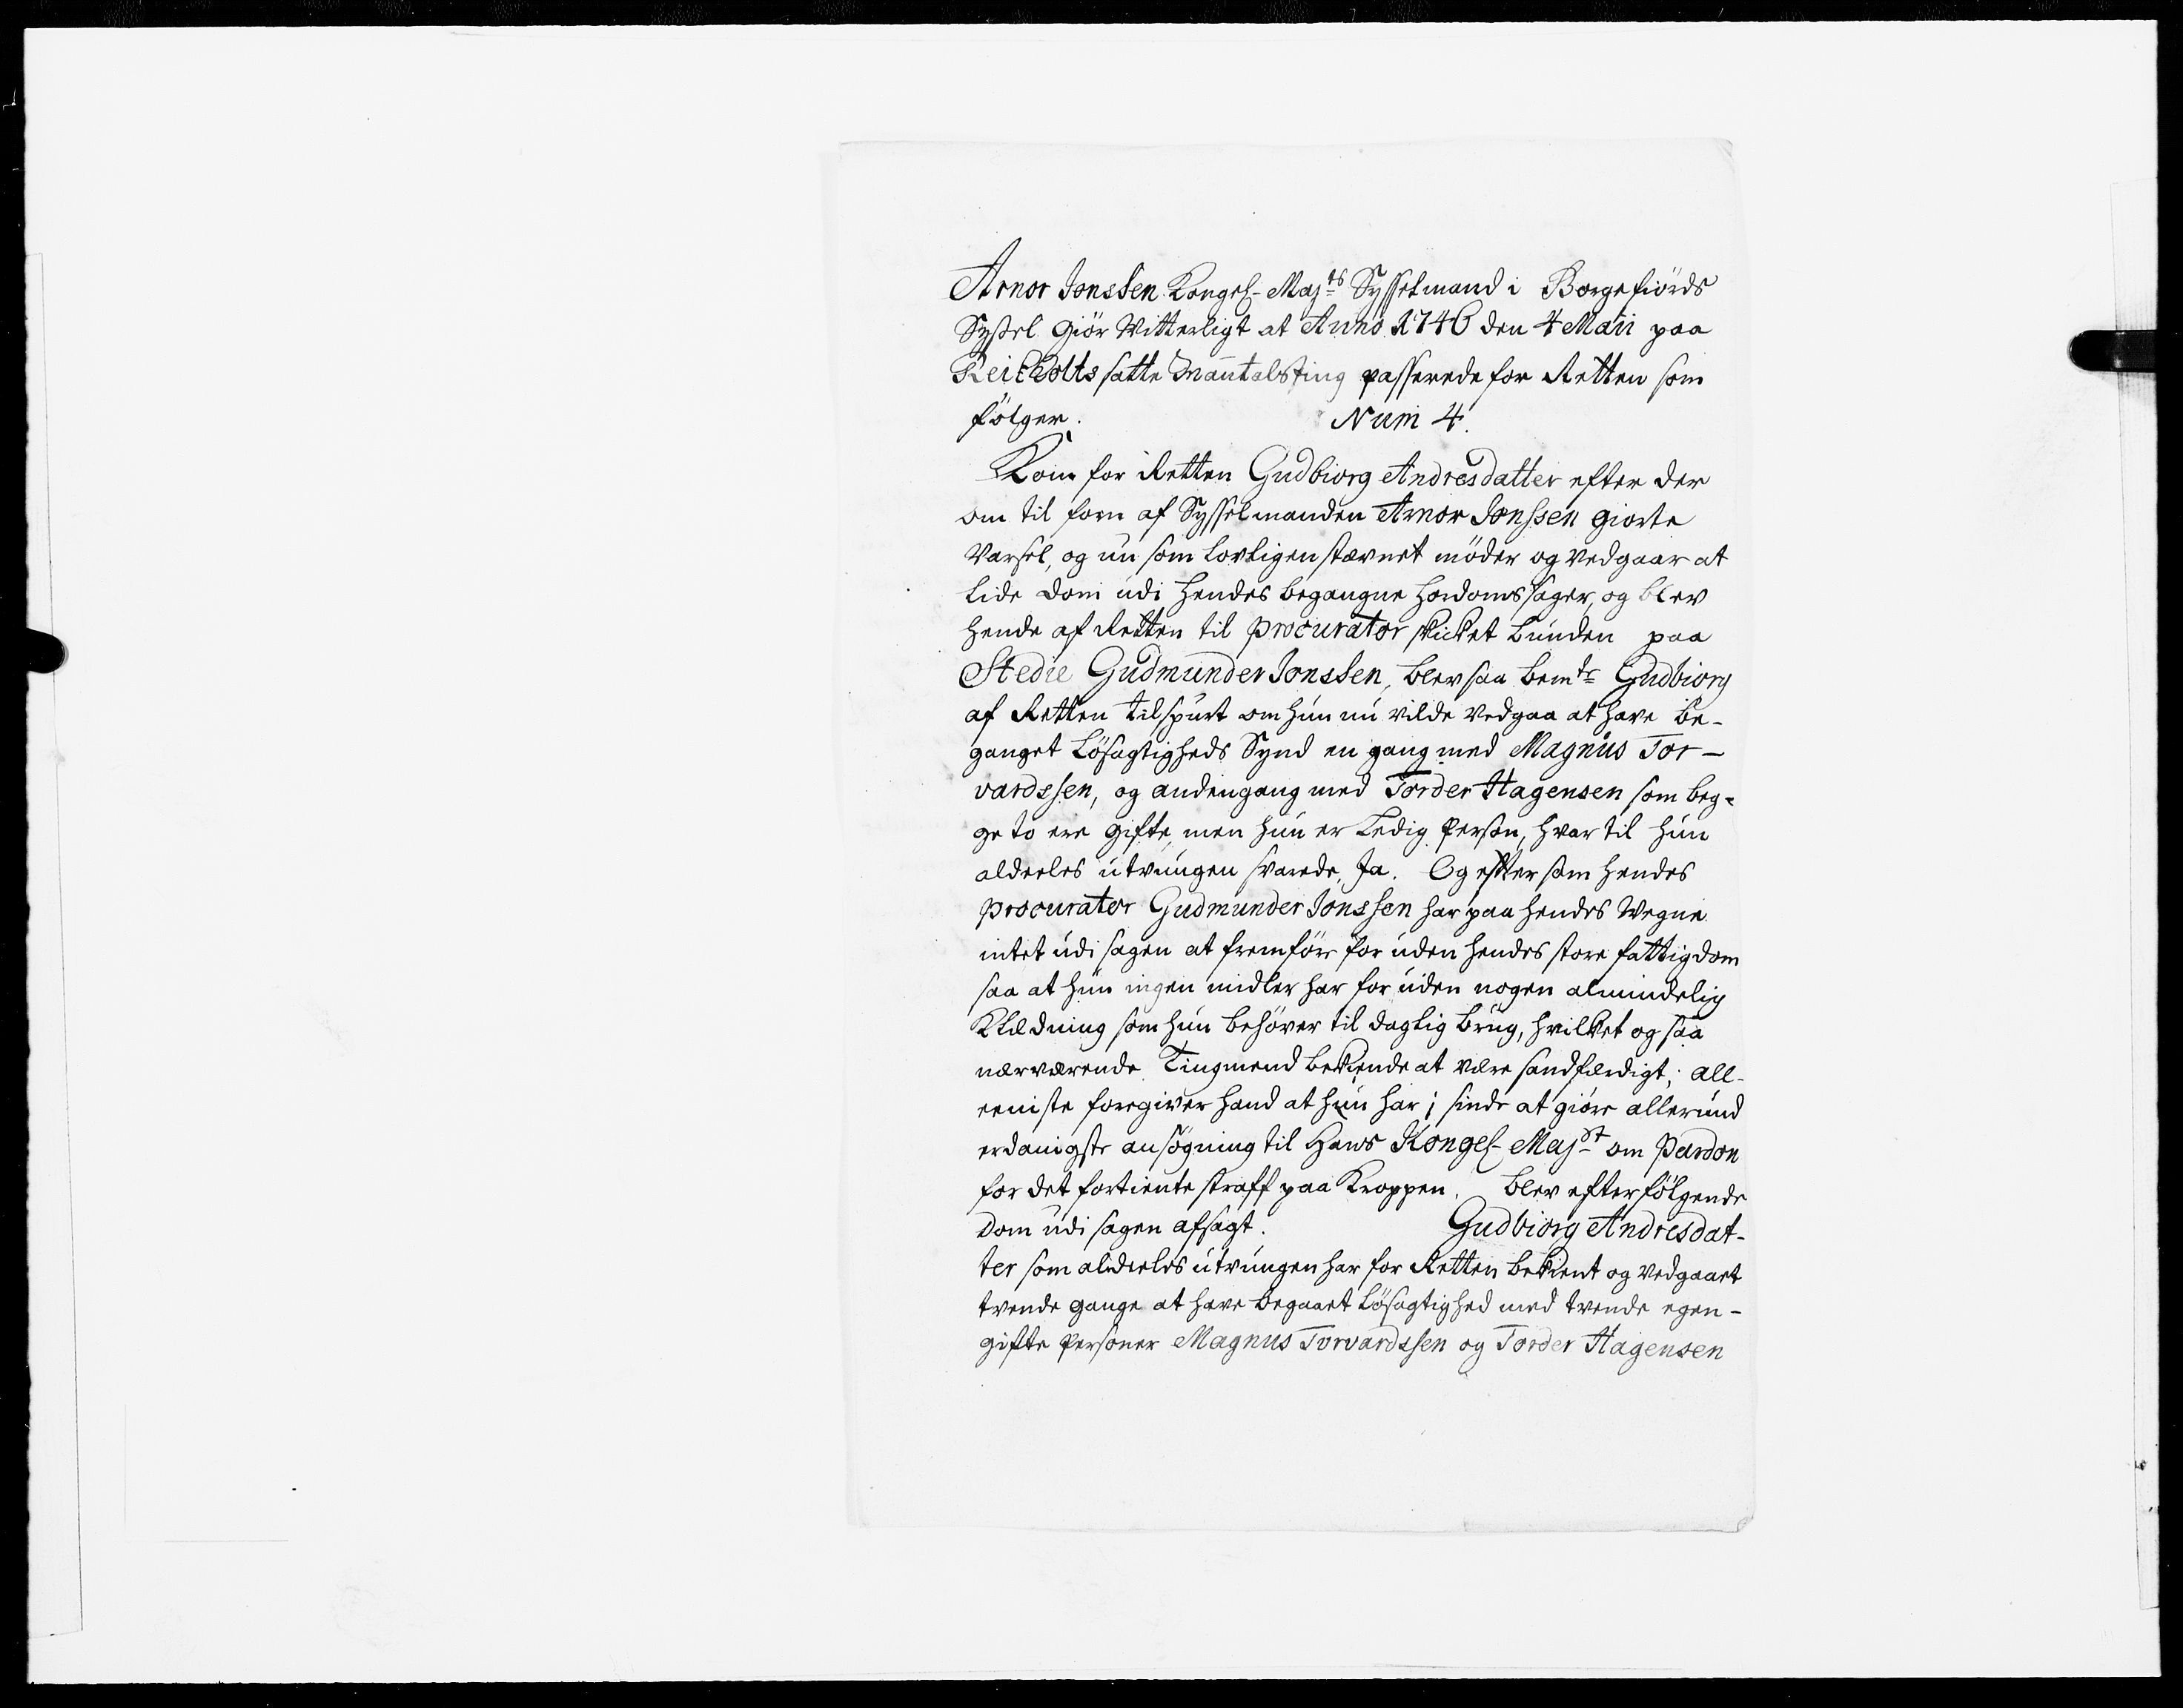 Arnor Jonssen Kongel- Majts Sysselmand i Borgefiörds
Syssel Giör Witterligt at Anno 1746 den 4 Maii paa
Reikholts satte Mantalsting passerede for Retten som
fölger. Num 4.
Kom for Retten Gudbiorg Andresdatter efter der
om til forn af Sysselmanden Arnor Jonssen giorte
Varsel, og nu som lovligen stævnet möder og vedgaar at
lide dom udi hendes begangne hordomssager, og blev
hende af Retten til procurator skicket bunden paa
Stedie Gudmunder Jonssen, blev saa bemte Gudbiorg
af Retten tilspurt om hun nu vilde vedgaa at have be-
ganget Lösagtigheds Synd en gang med Magnus Tor-
vardssen, og anden gang med Torder Hagensen som beg-
ge to ere gifte, men hun er Ledig Person, hvar til hun
aldeeles utvungen svarede, Ja. Og efftersom hendes
procurator Gudmunder Jonssen har paa hendes Wegne
intet udi sagen at fremföre for uden hendes store fattigdom
saa at hun ingen midler har for uden nogen almindelig
Klædning som hun behöver til daglig brug, hvilket og saa
nærværende Tingmend bekiende at være sandfærdigt, all-
eeniste foregiver hand at hun har i sinde at giöre allerund
erdanigste ansögning til Hans Kongel- Majst om Pardon
for det fortiente straff paa Kroppen. Blev efterfölgende
dom udi sagen afsagt. Gudbiorg Andresdat-
ter som aldeeles utvungen har for Retten bekient og vedgaaet
tvende gange at have begaaet Lösagtighed med tvende egen-
gifte Personer Magnus Torvardssen og Torder Hagensen